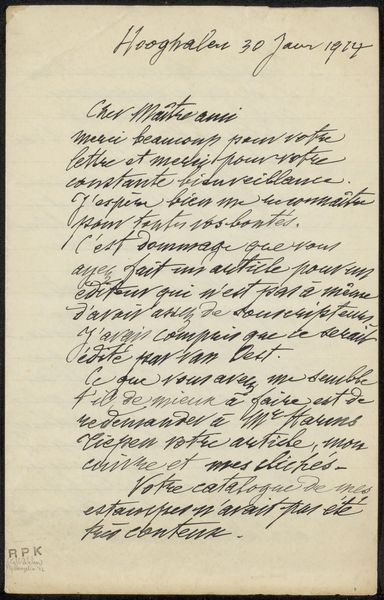 Hooghalen 30 Janv 1914
Cher Maître ami
merci beaucoup pour votre
lettre et merci pour votre
constante bienveillance.
J'espère bien me reconnaître
pour toutes vos bontés.
C'est dommage que vous
ayez fait un article pour un
éditeur qui n'est pas à même
d'avoir assez de souscripteurs
J'avais compris que ce serait
édité par van Oest.
Ce que vous avez me semble
t'il de mieux à faire est de
redemander à Mr Harms
Tiepen votre article, mon
cuivre et mes clichés -
Votre catalogue de mes
estampes n'avait pas été
très conteux.
RPK